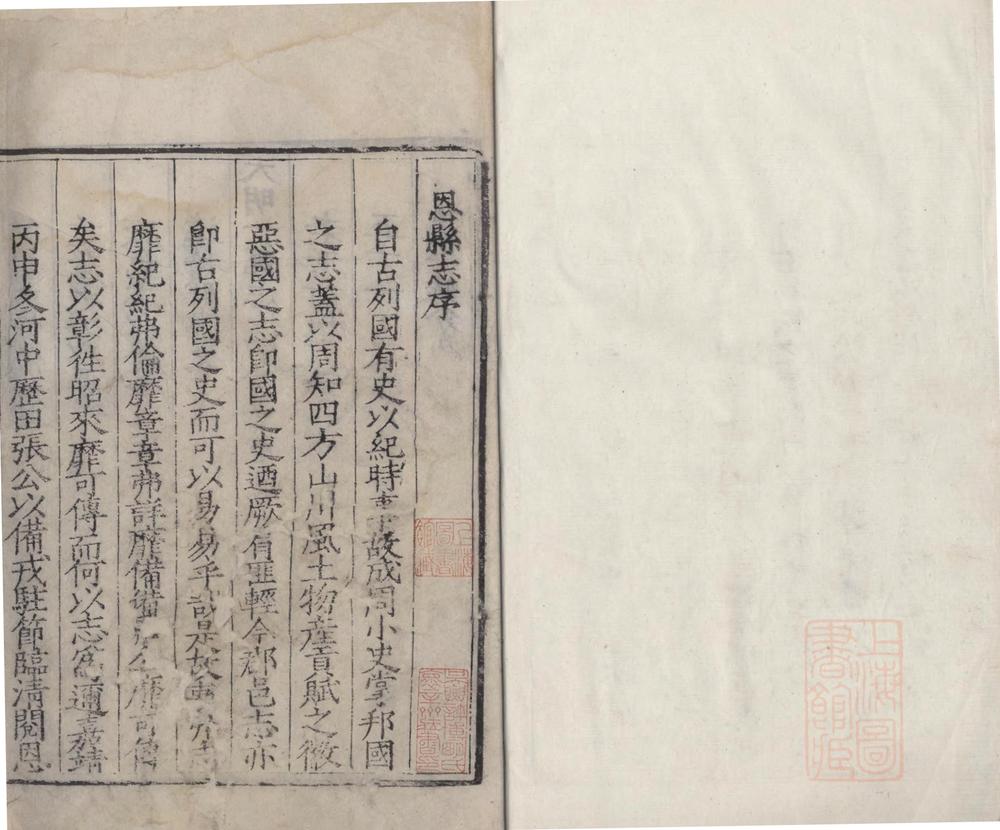 恩縣志序
自古列國有史以紀時事故成周小史掌邦國
之志蓋以周知四方山川風土物產貢賦之微
惡國之志卽國之史迺厥有匪輕今郡邑志亦
卽古列國之史而可以易易乎哉是故
靡紀紀弗倫靡章章弗詳靡備備靡可傳
矣志以彰徃昭來靡可傳而何以志爲邇嘉靖
丙申冬河中歷田張公以備戎駐節臨清閱恩
上海圖書館藏
上海圖書館藏